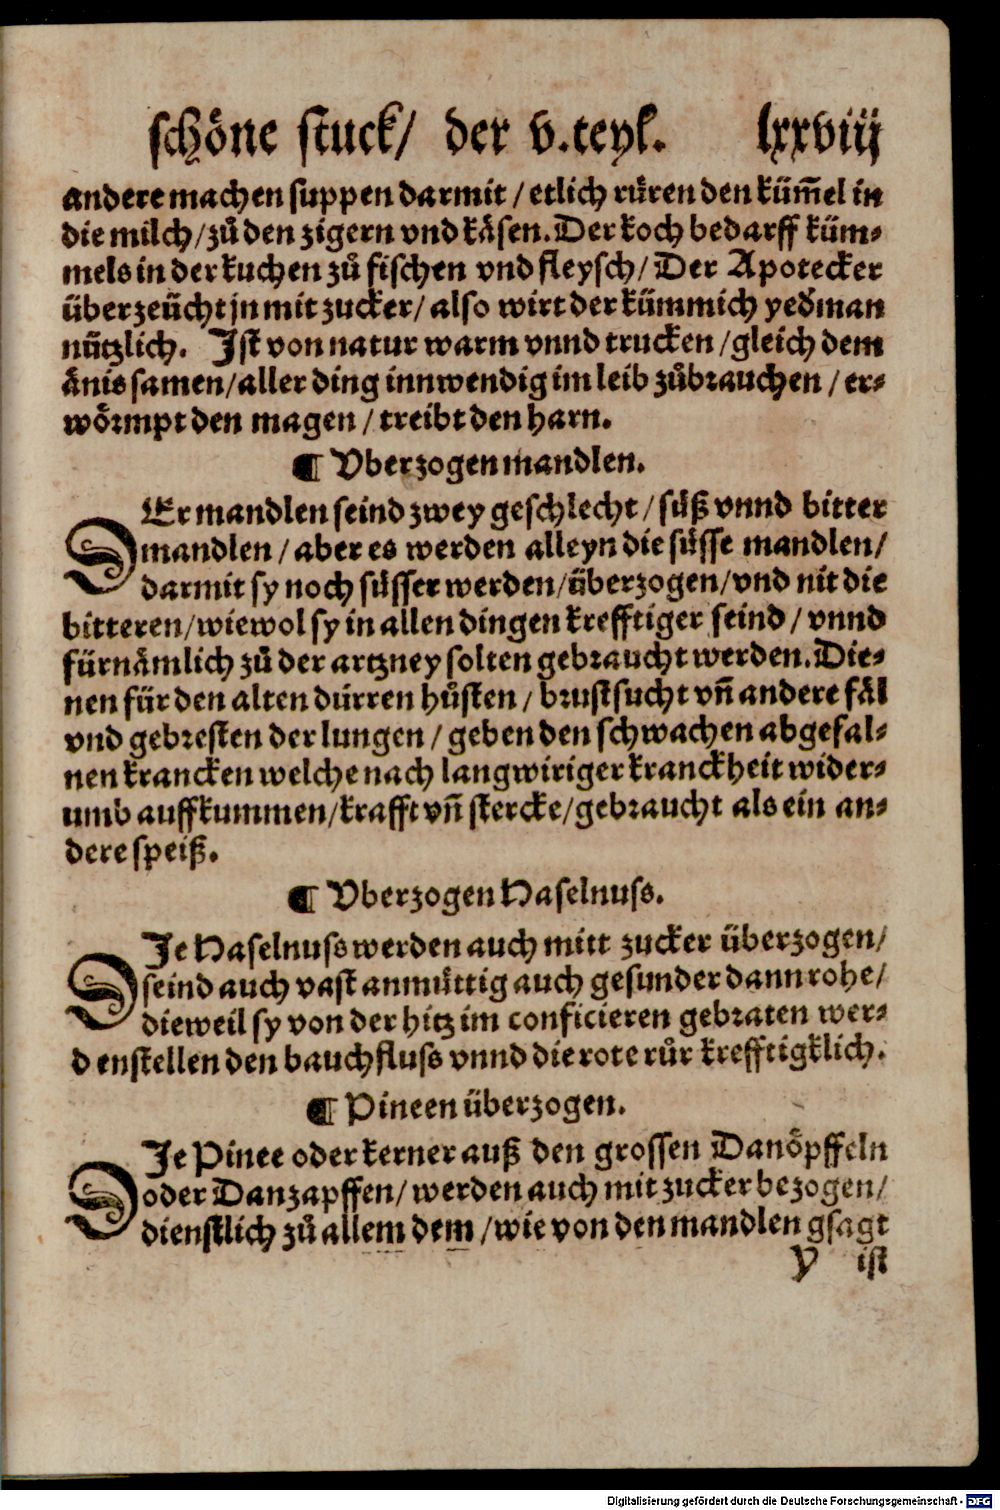 schöne stuck/ der v.teyl. lxxviij
andere machen suppen darmit / etlich ruͤren den küm̃el in
die milch / zuͦ den zigern vnd kåsen. Der koch bedarff küm⸗
mels in der kuchen zuͦ fischen vnd fleysch / Der Apotecker
überzeücht jn mit zucker / also wirt der kümmich yed̃man
nützlich. Ist von natur warm vnnd trucken / gleich dem
änis samen / aller ding innwendig im leib zuͦbrauchen / er⸗
wörmpt den magen / treibt den harn.
¶ Vberzogen mandlen.
DEr mandlen seind zwey geschlecht / suͤß vnnd bitter
mandlen / aber es werden alleyn die suͤsse mandlen /
darmit sy noch suͤsser werden / überzogen / vnd nit die
bitteren / wiewol sy in allen dingen krefftiger seind / vnnd
fürnämlich zuͦ der artzney solten gebraucht werden. Die⸗
nen für den alten dürren huͦsten / brustsucht vñ andere fäl
vnd gebresten der lungen / geben den schwachen abgefal⸗
nen krancken welche nach langwiriger kranckheit wider⸗
umb auffkummen / krafft vñ stercke / gebraucht als ein an⸗
dere speiß.
¶ Vberzogen Haselnuss.
DIe Haselnuss werden auch mitt zucker überzogen /
seind auch vast anmuͤttig auch gesunder dann rohe /
dieweil sy von der hitz im conficieren gebraten wer⸗
d enstellen den bauchfluss vnnd die rote ruͦr krefftigklich.
¶ Pineen überzogen.
DIe Pinee oder kerner auß den grossen Danöpffeln
oder Danzapffen / werden auch mit zucker bezogen /
dienstlich zuͦ allem dem / wie von den mandlen gsagt
V ist
Digitalisierung gefördert durch die Deutsche Forschungsgemeinschaft - DFG